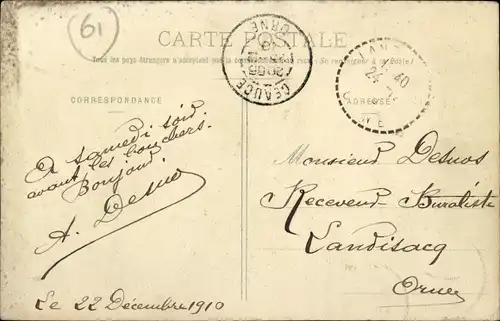 61
CARTE POSTALE
Tous les pays étrangers n'acceptent pas la correspondance au recto. (Se renseigner à la Poste)
CORRESPONDANCE
ADRESSE
CEAUCÉ
ORNE
24
40
A samedi soir
avant les bouchers.
Bonjour.
A. Desnos
Monsieur Desnos
Receveur-Buraliste
Landisacq
Orne
Le 22 Décembre 1910